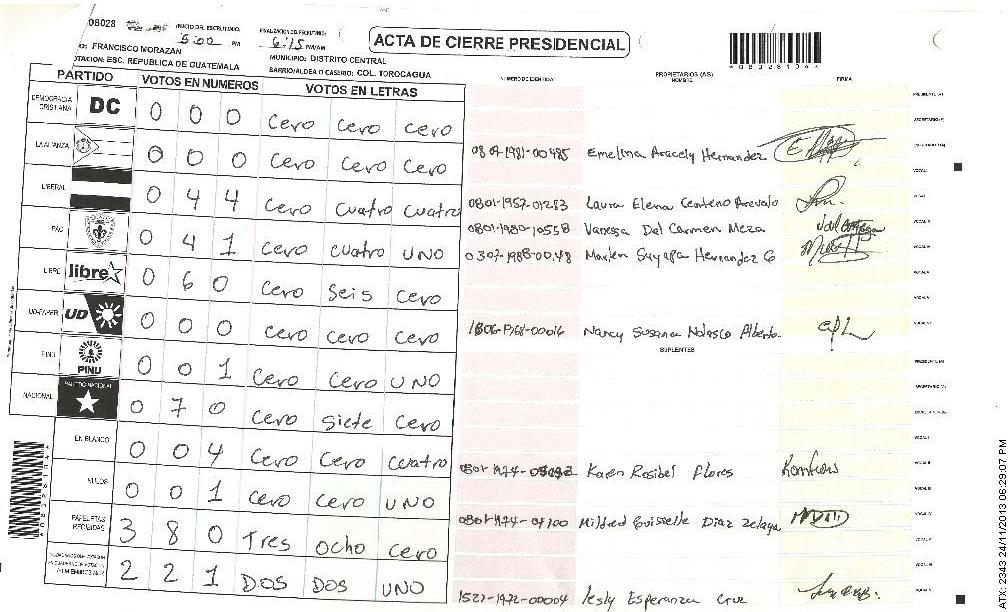 08028
INICIO DEL ESCRUTINIO:
5:00 PM
FINALIZACION DEL ESCRUTINIO:
6:15 PM/AM
ACTA DE CIERRE PRESIDENCIAL
FRANCISCO MORAZAN
MUNICIPIO: DISTRITO CENTRAL
ESC. REPUBLICA DE GUATEMALA
BARRIO/ALDEA O CASERIO: COL. TOROCAGUA
PARTIDO VOTOS EN NUMEROS VOTOS EN LETRAS
NUMERO DE IDENTIDAD PROPIETARIOS (AS) NOMBRE FIRMA
DEMOCRACIA CRISTIANA DC 0 0 0 Cero Cero Cero
LA ALIANZA 0 0 0 Cero Cero Cero
LIBERAL 0 4 4 Cero Cuatro Cuatro
PAC 0 4 1 Cero Cuatro UNO
LIBRE libre 0 6 0 Cero Seis Cero
UD-FAPER UD 0 0 0 Cero Cero Cero
PINU PINU 0 0 1 Cero Cero UNO
NACIONAL PARTIDO NACIONAL 0 7 0 Cero Siete Cero
EN BLANCO 0 0 4 Cero Cero Cuatro
NULOS 0 0 1 Cero Cero UNO
PAPELETAS RECIBIDAS 3 8 0 Tres Ocho Cero
2 2 1 DOS DOS UNO
Emelina Aracely Hernandez
0801-1957-01283 Laura Elena Centeno Arevalo
0801-1980-10558 Vanessa Del Carmen Meza
Marlen Suyapa Hernandez G
Nancy Susana Nolasco Alberto
SUPLENTES
Karen Rosibel Flores
Mildred Diaz Zelaya
1521-1972-00004 lesly Esperanza Cruz
2343 24/11/2013 06:29:07 PM